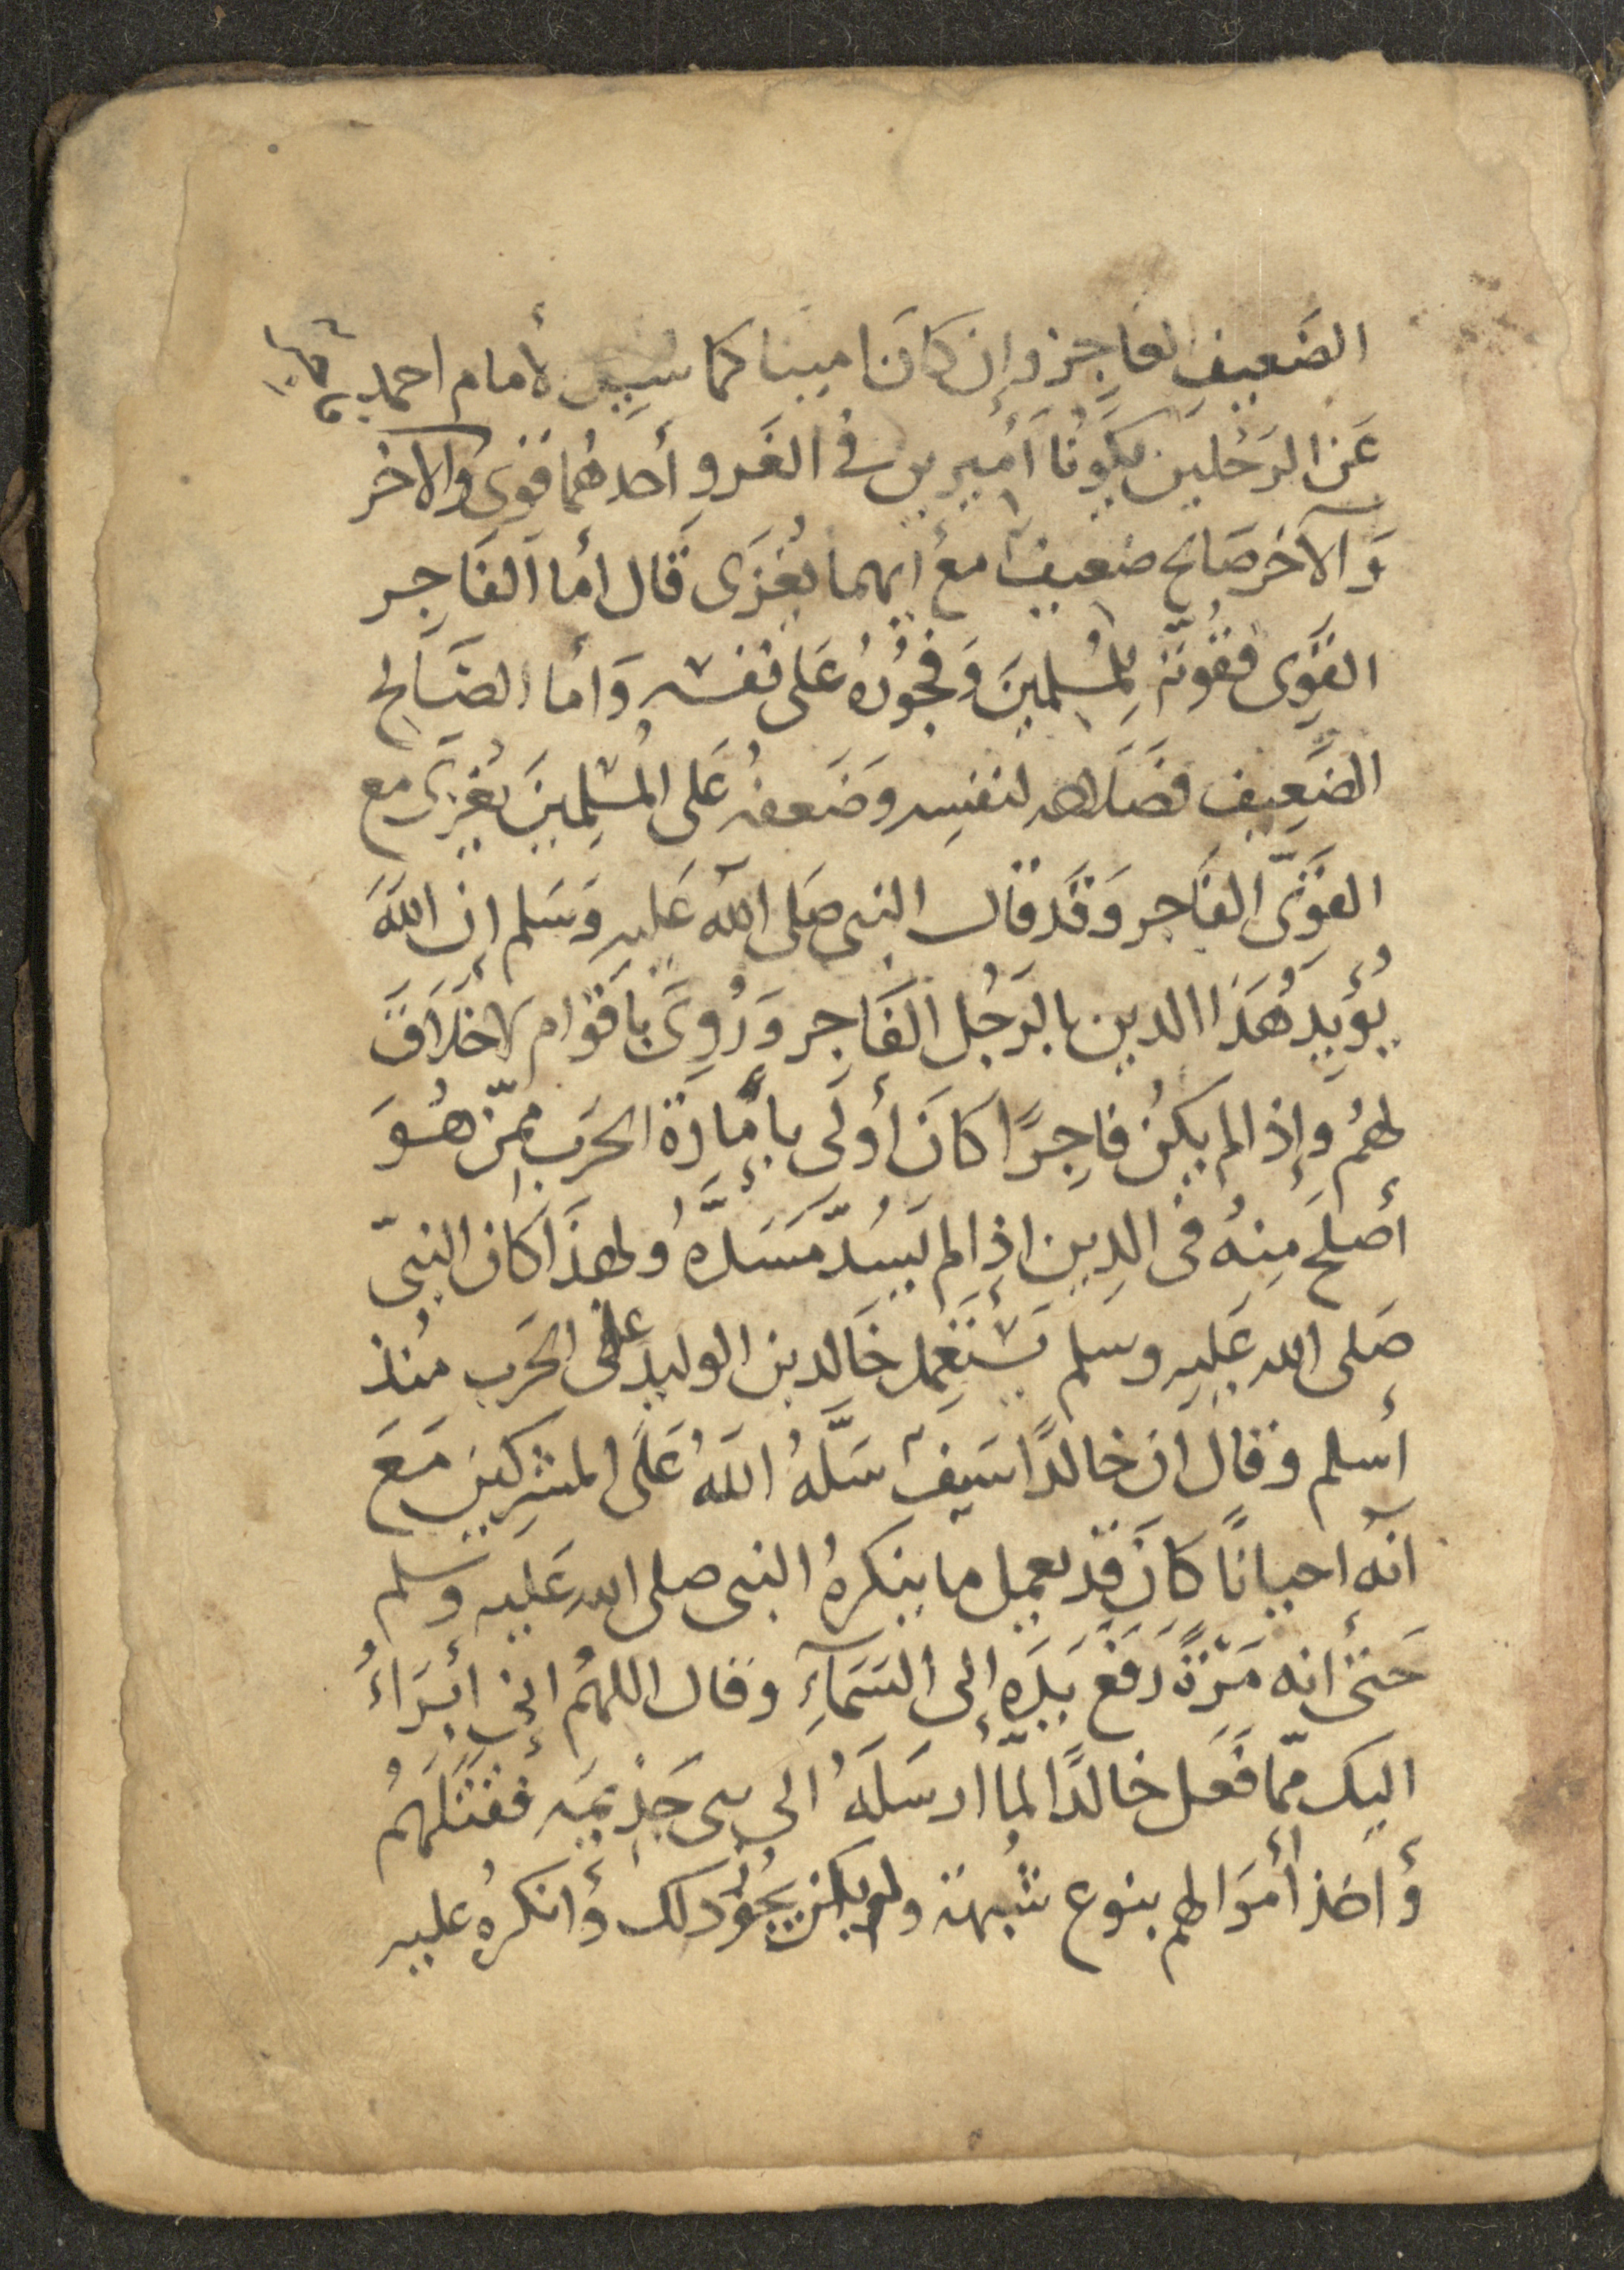 الضَعيفِ العاجِز وإن كانَ امينا كما سُيِلَ لأمام احمد
عَن الرَجُلين يكَونَا أميرين في الغَزو أحدهُما قوي والاخر
وَالآخر صَالح ضعيف مع أيهما يُغزَى قَال أما الفَاجِر
القَوِى فقُوتَّه لِلمُسلمِينَ وَفجُورُهُ عَلى نفسْه وَأما الصَالح
الضَعِيف فصَلاحه لنفسِه وَضَعفهُ عَلى المُسْلِمينَ يُغزَى مع
القوَيّ الفَاجر وَقَد قال النبى صَلى اللهُ عَليهِ وَسَلم إن اللهَ
يُؤيِدُ هَذَا الدين بالرَجُل الفَاجِر وَرُوِىَ بأقوَام لاخلَاقَ
لهمُ وإذ الم يكنُ فاجِرًا كانَ أولَى بإمَارَة الحَربِ ممِنّ هُوَ
أصلحَ مِنهُ فى الدِين اذِا لم يَسُدّ مَسَدَّهُ ولهذَا كان النبىّ
صَلى الله عَليهِ وسَلم يَسْتَعِمل خَالد بن الوليد على فى الحَرب مُنذ
أسلم وَقالَ ان خالدًا سَيفٌ سَلَّهُ اللهُ عَلَى المشرِكين مَعَ
انهُ احيانًا كانَ قدَ يعمِل ما ينكرهُ النبى صلى الله عَليه وسلم
حَتىٰ أنه مَرّةً رَفعَ يَدَهِ إلى السَمَآءِ وقال اللهمُ إني أبرَاءُ
اليك ممّا فَعَل خالدًا لمّا أرسَلَهُ الى بى جَذِيمَه فقتَلَهمُ
وأخذ أمَوَالهم بنوع شُبهَة ولم يكن يجُوز ذلك وأنكرهُ عليه